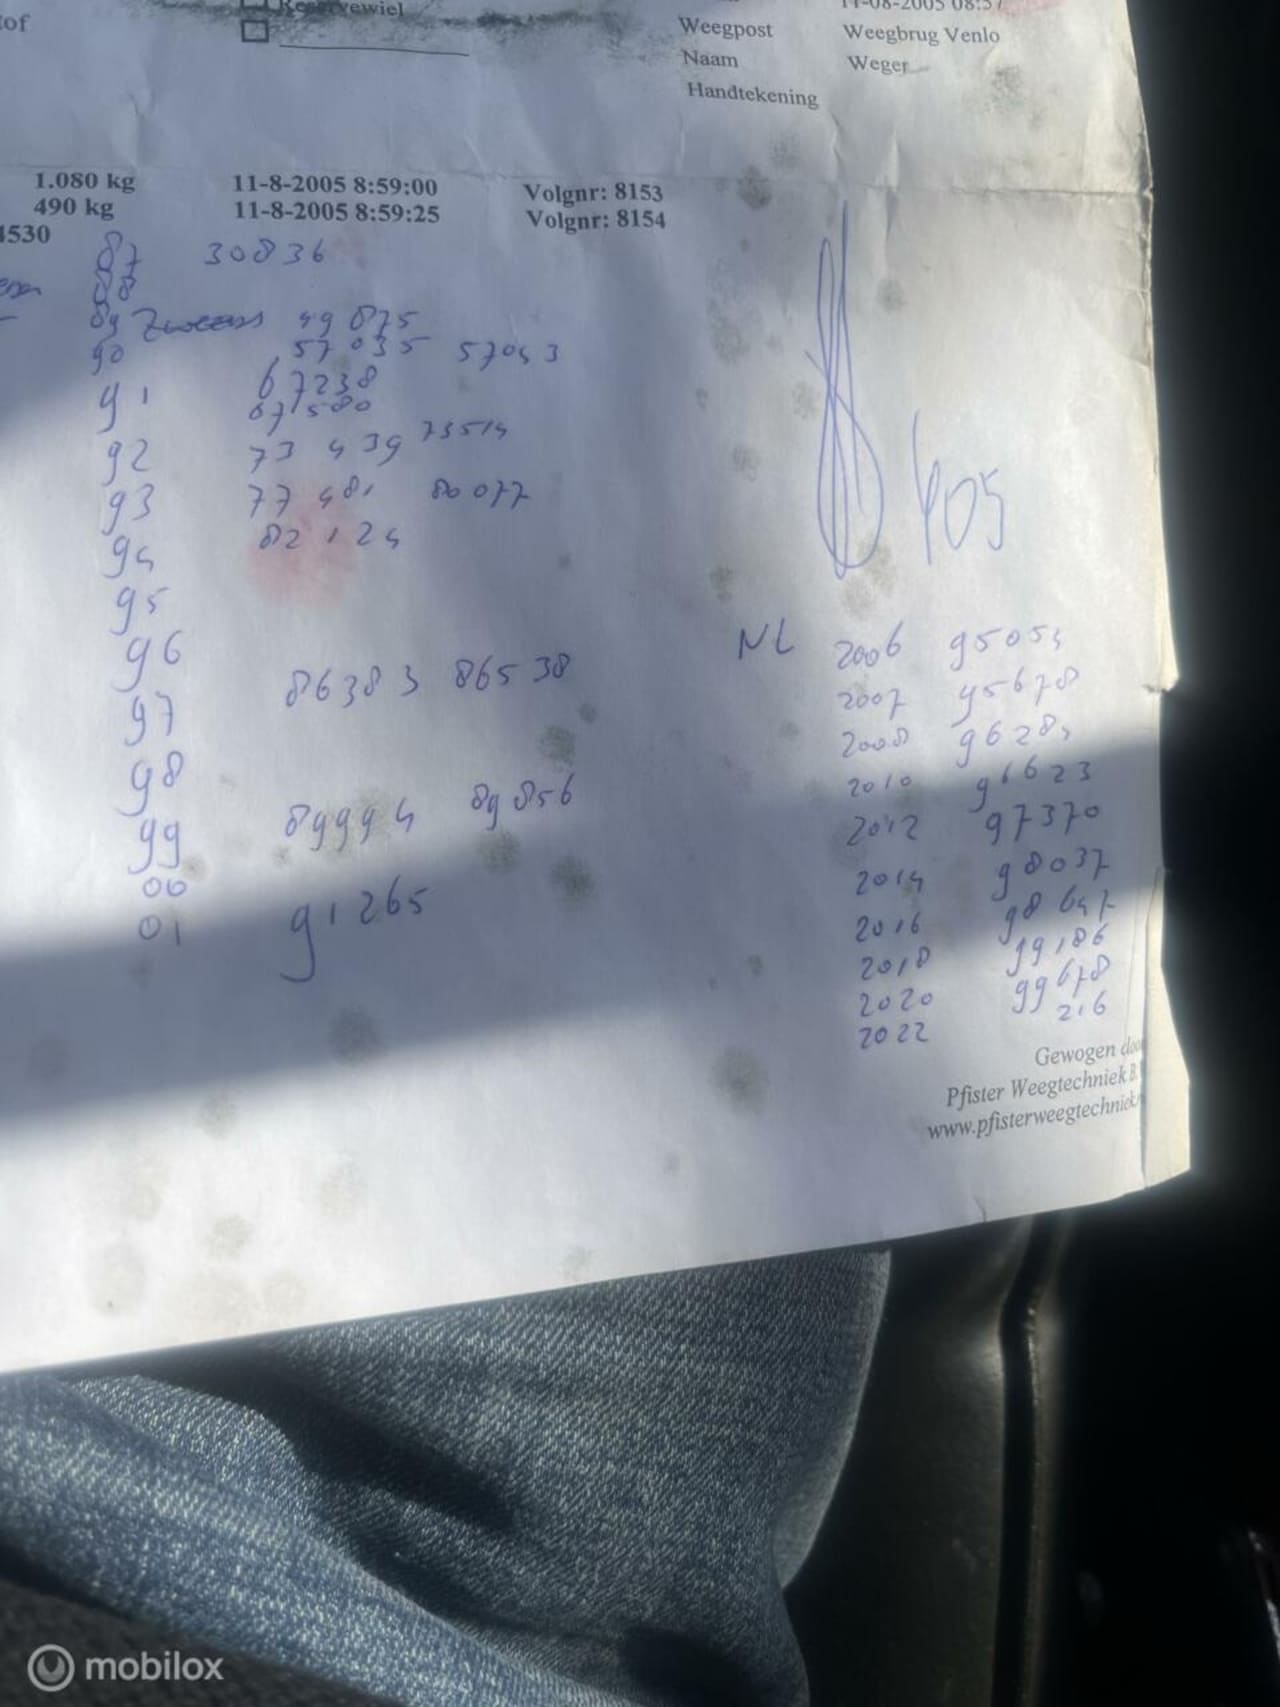 Reservewiel
tof
11-08-2005 08:57
Weegpost Weegbrug Venlo
Naam Weger
Handtekening
1.080 kg 11-8-2005 8:59:00 Volgnr: 8153
490 kg 11-8-2005 8:59:25 Volgnr: 8154
4530
87 30836
88
89 49 875
90 57035 57043
91 67238
67580
92 73 439 73514
93 77 481 80077
94 82124
95
96
97 86383 86538
98
99 89994 89856
00
01 91265
405
NL 2006 95054
2007 95678
2008 96284
2010 96623
2012 97370
2014 98037
2016 98647
2018 99186
2020 99678
2022 216
Gewogen doo
Pfister Weegtechniek B.
www.pfisterweegtechniek.
mobilox